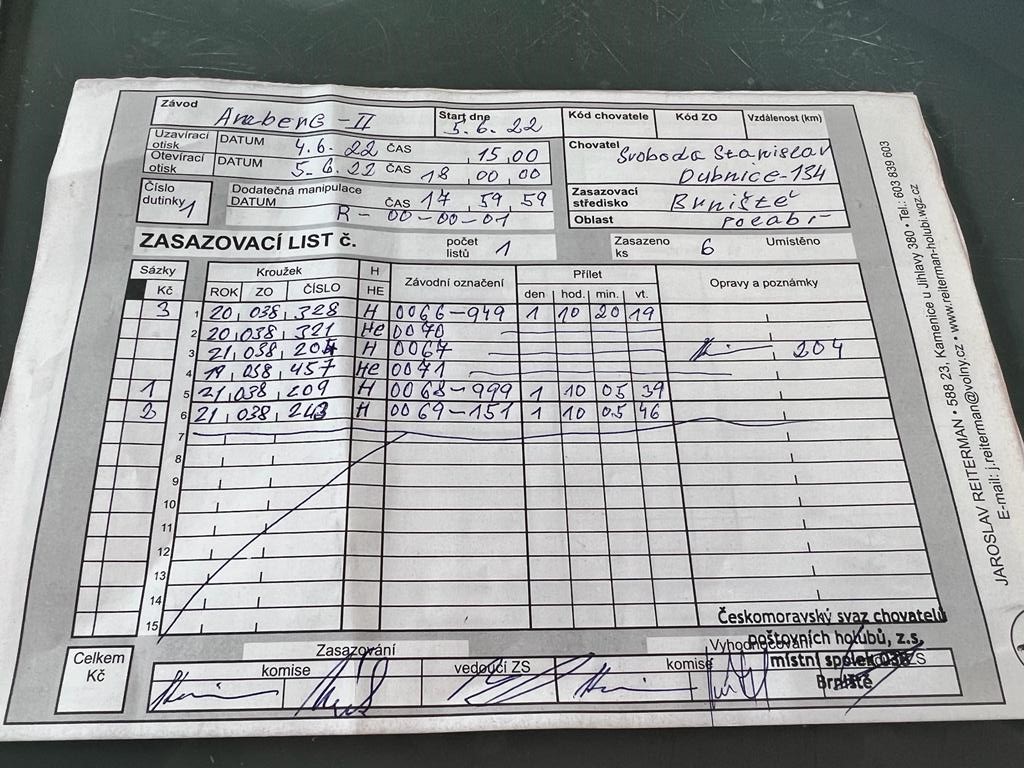 Závod Anaberg - II Start dne 5.6.22 Kód chovatele Kód ZO Vzdálenost (km)
Uzavírací otisk DATUM 4.6.22 ČAS 15,00
Otevírací otisk DATUM 5.6.22 ČAS 18 00,00
Chovatel Svoboda Stanislav
Dubnice-134
Číslo dutinky 1 Dodatečná manipulace DATUM ČAS 17 59 59
R - 00-00-01
Zasazovací středisko Brniště
Oblast Polabí
ZASAZOVACÍ LIST č. počet listů 1 Zasazeno ks 6 Umístěno
Sázky Kroužek H Závodní označení Přílet Opravy a poznámky
Kč ROK ZO ČÍSLO HE den hod. min. vt.
3 1 20 038 328 H 0066-949 1 10 20 19
2 20 038 321 He 0070
3 21 038 204 H 0067 204
4 19 038 457 He 0071
1 5 21 038 209 H 0068-999 1 10 05 39
2 6 21 038 243 H 0069-151 1 10 05 46
7
8
9
10
11
12
13
14
15
Českomoravský svaz chovatelů
poštovních holubů, z.s.
místní spolek 038
Brniště
Celkem Kč Zasazování Vyhodnocování
komise vedoucí ZS komise ZS
JAROSLAV REITERMAN • 588 23, Kamenice u Jihlavy 380 • Tel.: 603 839 603
E-mail: j.reiterman@volny.cz • www.reiterman-holubi.wgz.cz